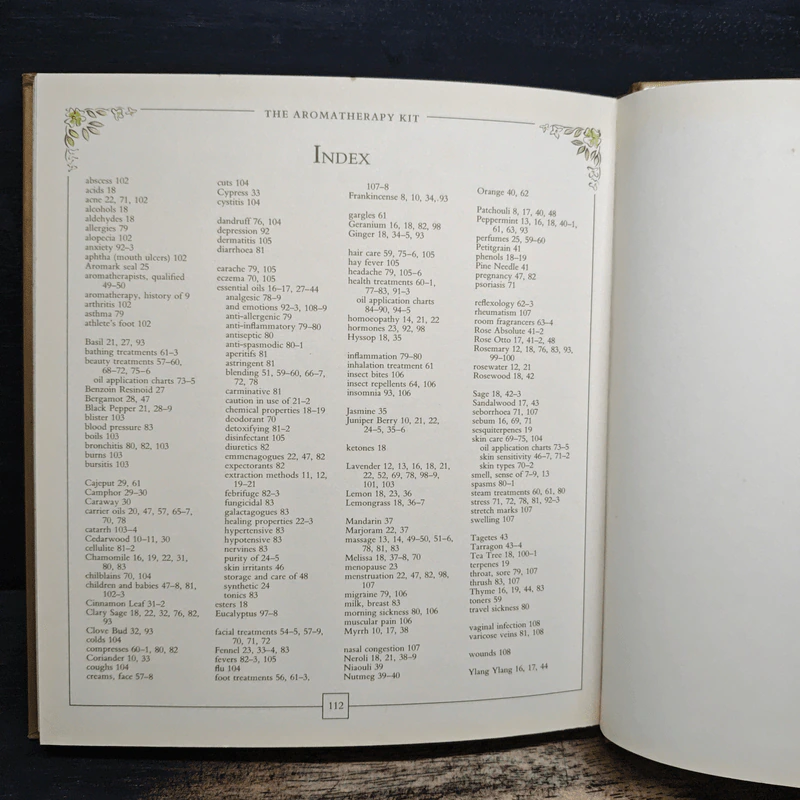 THE AROMATHERAPY KIT
INDEX
abscess 102
acids 18
acne 22, 71, 102
alcohols 18
aldehydes 18
allergies 79
alopecia 102
anxiety 92–3
aphtha (mouth ulcers) 102
Aromark seal 25
aromatherapists, qualified
49–50
aromatherapy, history of 9
arthritis 102
asthma 79
athlete's foot 102
Basil 21, 27, 93
bathing treatments 61–3
beauty treatments 57–60,
68–72, 75–6
oil application charts 73–5
Benzoin Resinoid 27
Bergamot 28, 47
Black Pepper 21, 28–9
blister 103
blood pressure 83
boils 103
bronchitis 80, 82, 103
burns 103
bursitis 103
Cajeput 29, 61
Camphor 29–30
Caraway 30
carrier oils 20, 47, 57, 65–7,
70, 78
catarrh 103–4
Cedarwood 10–11, 30
cellulite 81–2
Chamomile 16, 19, 22, 31,
80, 83
chilblains 70, 104
children and babies 47–8, 81,
102–3
Cinnamon Leaf 31–2
Clary Sage 18, 22, 32, 76, 82,
93
Clove Bud 32, 93
colds 104
compresses 60–1, 80, 82
Coriander 10, 33
coughs 104
creams, face 57–8
cuts 104
Cypress 33
cystitis 104
dandruff 76, 104
depression 92
dermatitis 105
diarrhoea 81
earache 79, 105
eczema 70, 105
essential oils 16–17, 27–44
analgesic 78–9
and emotions 92–3, 108–9
anti-allergenic 79
anti-inflammatory 79–80
antiseptic 80
anti-spasmodic 80–1
aperitifs 81
astringent 81
blending 51, 59–60, 66–7,
72, 78
carminative 81
caution in use of 21–2
chemical properties 18–19
deodorant 70
detoxifying 81–2
disinfectant 105
diuretics 82
emmenagogues 22, 47, 82
expectorants 82
extraction methods 11, 12,
19–21
febrifuge 82–3
fungicidal 83
galactagogues 83
healing properties 22–3
hypertensive 83
hypotensive 83
nervines 83
purity of 24–5
skin irritants 46
storage and care of 48
synthetic 24
tonics 83
esters 18
Eucalyptus 97–8
facial treatments 54–5, 57–9,
70, 71, 72
Fennel 23, 33–4, 83
fevers 82–3, 105
flu 104
foot treatments 56, 61–3,
107–8
Frankincense 8, 10, 34, 93
gargles 61
Geranium 16, 18, 82, 98
Ginger 18, 34–5, 93
hair care 59, 75–6, 105
hay fever 105
headache 79, 105–6
health treatments 60–1,
77–83, 91–3
oil application charts
84–90, 94–5
homoeopathy 14, 21, 22
hormones 23, 92, 98
Hyssop 18, 35
inflammation 79–80
inhalation treatment 61
insect bites 106
insect repellents 64, 106
insomnia 93, 106
Jasmine 35
Juniper Berry 10, 21, 22,
24–5, 35–6
ketones 18
Lavender 12, 13, 16, 18, 21,
22, 52, 69, 78, 98–9,
101, 103
Lemon 18, 23, 36
Lemongrass 18, 36–7
Mandarin 37
Marjoram 22, 37
massage 13, 14, 49–50, 51–6,
78, 81, 83
Melissa 18, 37–8, 70
menopause 23
menstruation 22, 47, 82, 98,
107
migraine 79, 106
milk, breast 83
morning sickness 80, 106
muscular pain 106
Myrrh 10, 17, 38
nasal congestion 107
Neroli 18, 21, 38–9
Niaouli 39
Nutmeg 39–40
Orange 40, 62
Patchouli 8, 17, 40, 48
Peppermint 13, 16, 18, 40–1,
61, 63, 93
perfumes 25, 59–60
Petitgrain 41
phenols 18–19
Pine Needle 41
pregnancy 47, 82
psoriasis 71
reflexology 62–3
rheumatism 107
room fragrancers 63–4
Rose Absolute 41–2
Rose Otto 17, 41–2, 48
Rosemary 12, 18, 76, 83, 93,
99–100
rosewater 12, 21
Rosewood 18, 42
Sage 18, 42–3
Sandalwood 17, 43
seborrhoea 71, 107
sebum 16, 69, 71
sesquiterpenes 19
skin care 69–75, 104
oil application charts 73–5
skin sensitivity 46–7, 71–2
skin types 70–2
smell, sense of 7–9, 13
spasms 80–1
steam treatments 60, 61, 80
stress 71, 72, 78, 81, 92–3
stretch marks 107
swelling 107
Tagetes 43
Tarragon 43–4
Tea Tree 18, 100–1
terpenes 19
throat, sore 79, 107
thrush 83, 107
Thyme 16, 19, 44, 83
toners 59
travel sickness 80
vaginal infection 108
varicose veins 81, 108
wounds 108
Ylang Ylang 16, 17, 44
112